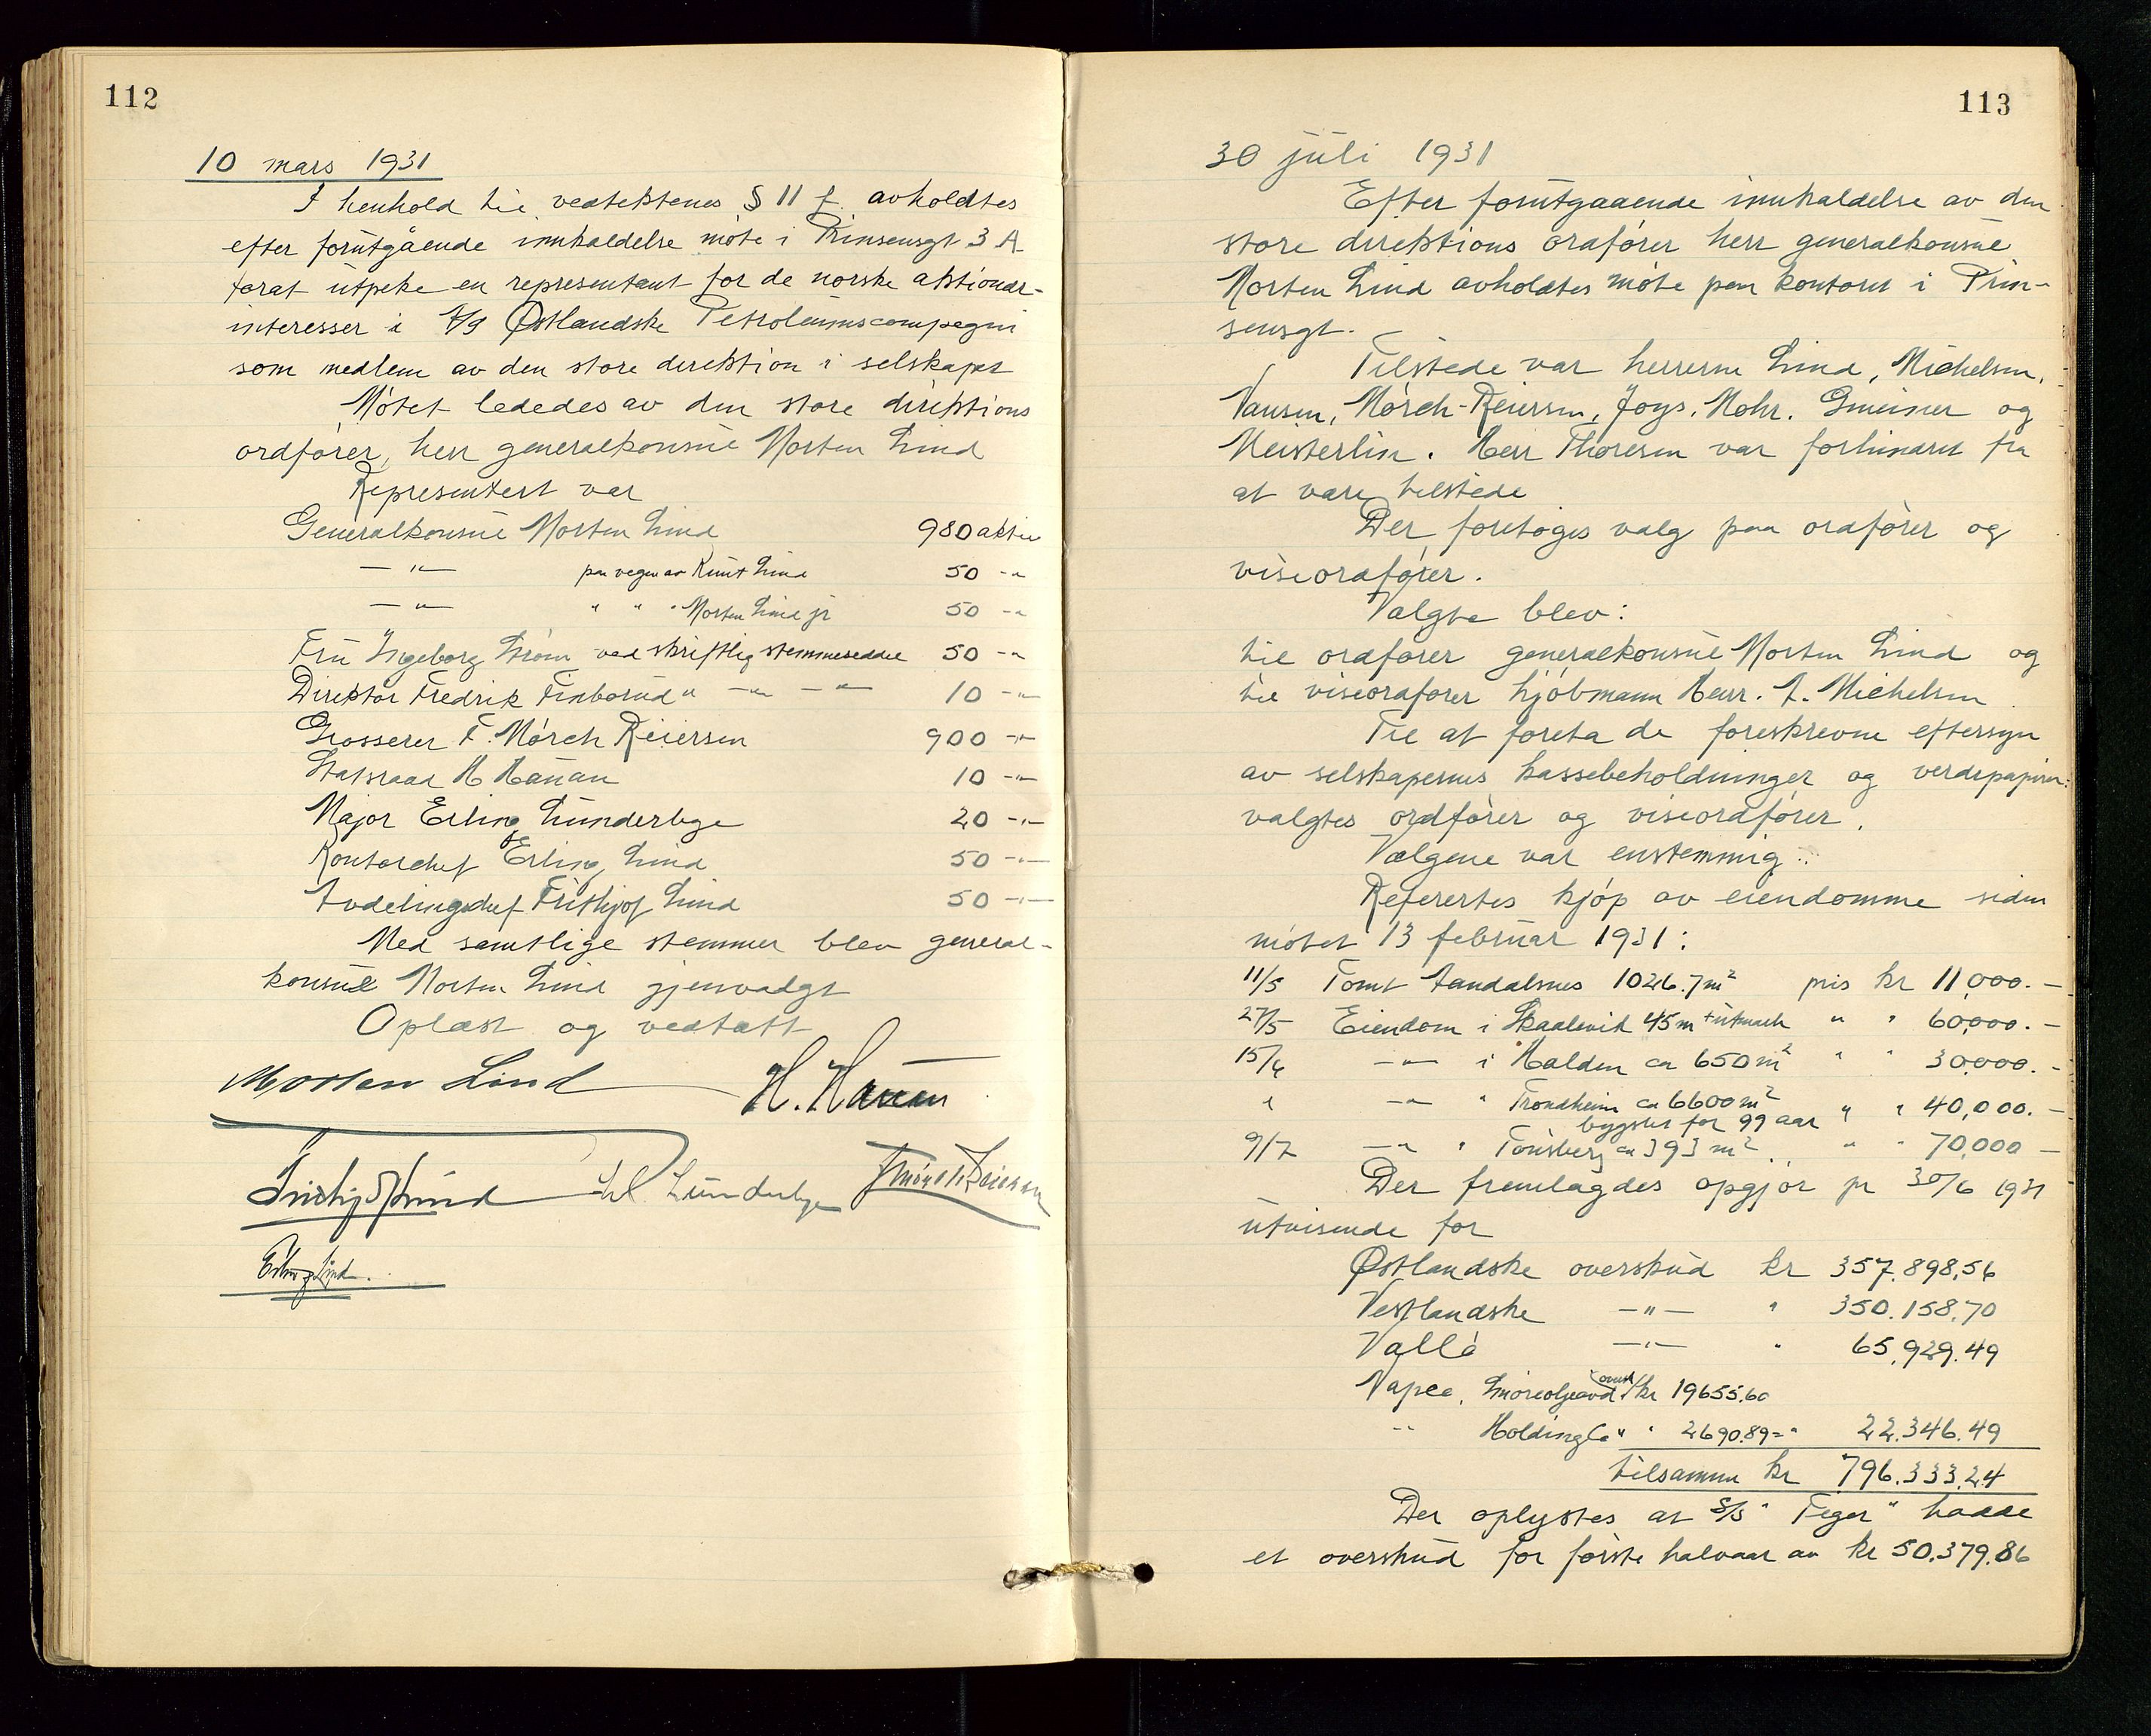 112
10 mars 1931
I henhold til vedtektenes § 11 f. avholdtes
efter forutgående innkaldelse møte i Prinsensgt 3 A
forat utpeke en representant for de norske aktionær-
interesser i A/S Østlandske Petroleumscompagni
som medlem av den store direktion i selskapet
Møtet lededes av den store direktions
ordfører, herr generalkonsul Morten Lind
Representert var
Generalkonsul Morten Lind 980 aktier
—"— paa vegne av Knut Lind 50 -"-
—"— " " " Morten Lind jr 50 -"-
Fru Ingeborg Strøm ved skriftlig stemmeseddel 50 -"-
Direktør Fredrik Finborud " —"— —"— 10 -"-
Grosserer F. Mørch Reiersen 900 -"-
Statsraad H Hauan 10 -"-
Major Erling Lunderbye 20 -"-
Kontorchef Erling Lind 50 -"-
Avdelingschef Frithjof Lind 50 -"-
Med samtlige stemmer blev general-
konsul Morten Lind gjenvalgt
Oplæst og vedtatt
Morten Lind H. Hauan
Frithjof Lind Lunderbye F Mørch Reiersen
Erling Lind.
113
30 juli 1931
Efter forutgaaende innkaldelse av den
store direktions ordfører herr generalkonsul
Morten Lind avholdtes møte paa kontoret i Prin-
sensgt.
Tilstede var herrerne Lind, Michelsen,
Nansen, Mørch-Reiersen, Joys, Mohr, Gmeiner og
Meisterlin. Herr Thoresen var forhindret fra
at være tilstede
Der foretoges valg paa ordfører og
viseordfører.
Valgte blev:
til ordfører generalkonsul Morten Lind og
til viseordfører kjøbmann Herr. A. Michelsen
Til at foreta de foreskrevne eftersyn
av selskapernes kassebeholdninger og verdipapirer
valgtes ordfører og viseordfører.
Valgene var enstemmig.
Referertes kjøp av eiendomme siden
møtet 13 februar 1931:
11/5 Tomt Aandalsnes 1026.7m² pris kr 11,000.-
27/5 Eiendom i Skaalevik 45m + utmark " " 60,000.-
15/6 —"— i Halden ca 650m² " " 30,000.-
" —"— " Trondheim ca 6600m²
bygslet for 99 aar " " 40,000.-
9/7 —"— " Tønsberg ca 393 m² " " 70,000 -
Der fremlagdes opgjør pr 30/6 1931
utvisende for
Østlandske overskud kr 357.898,56
Vestlandske —"— " 350.158.70
Vallø —"— " 65,929.49
Vapco, Smøreoljeavd. oversk kr 19655.60
-"- Holding Co " " 2690.89 = " 22.346.49
tilsammen kr 796.333.24
Der oplystes at S/S "Tiger" hadde
et overskud for første halvaar av kr 50.379.86